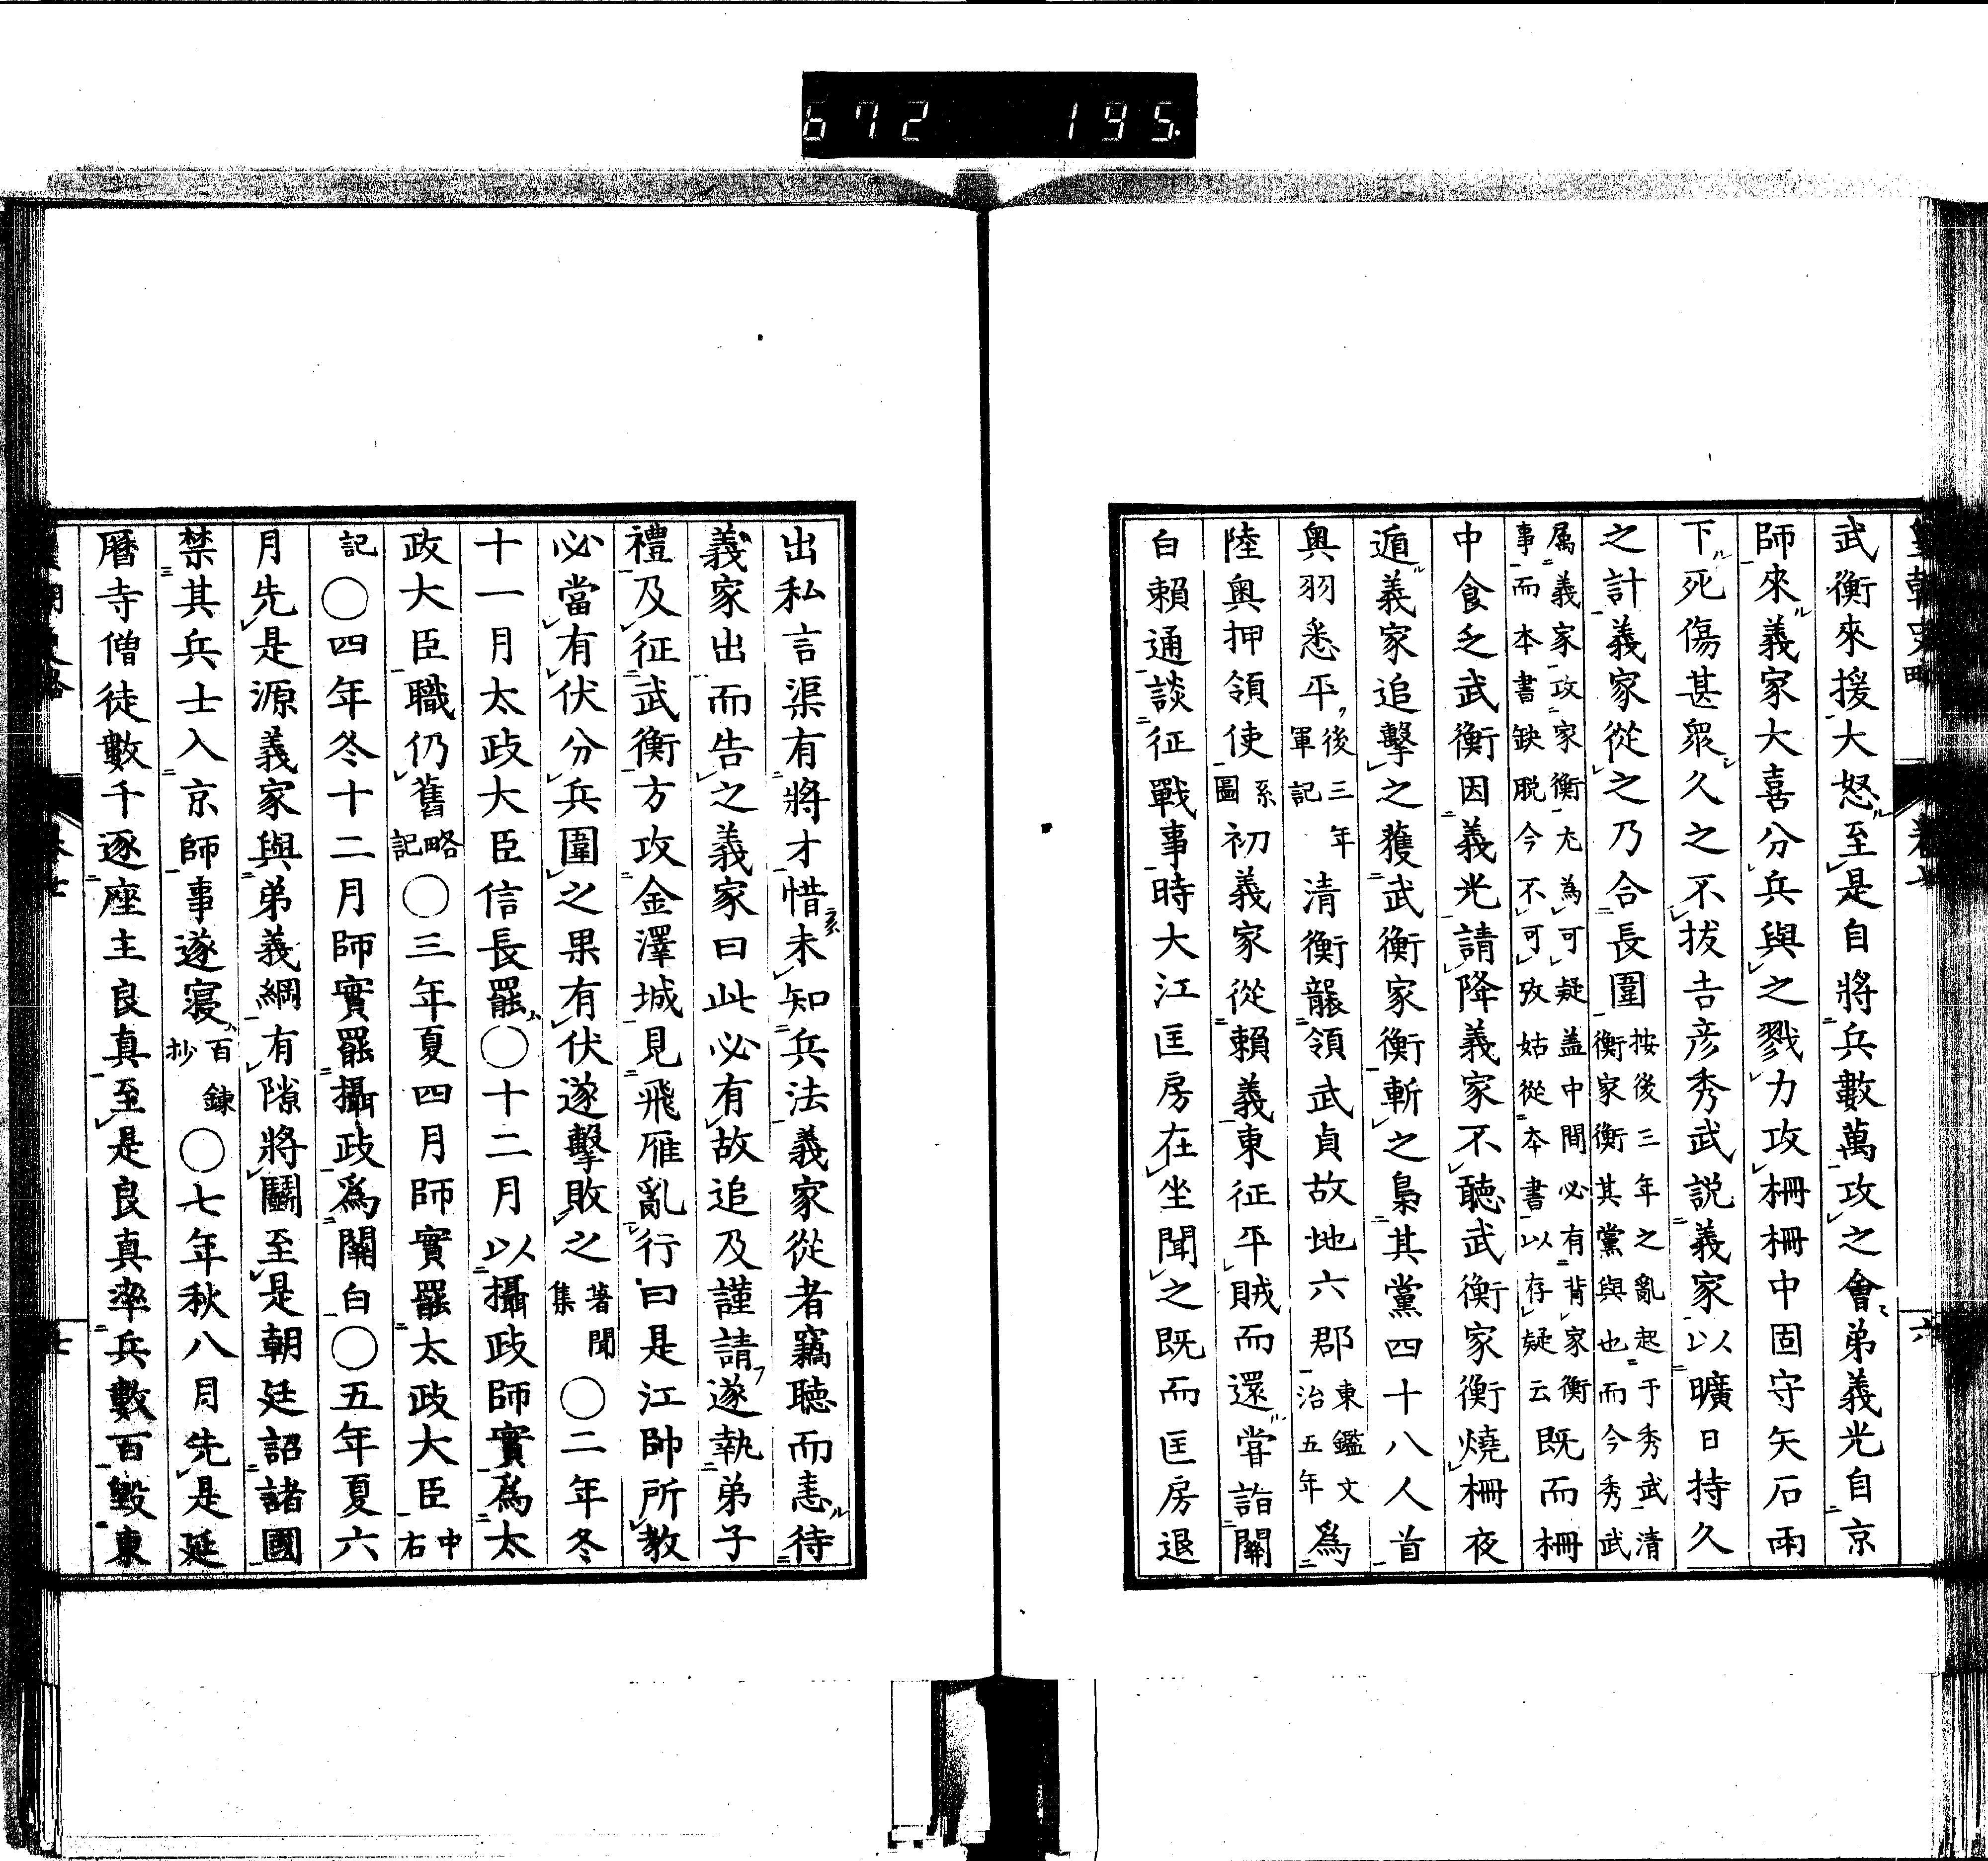 672 195
皇朝史略 卷七 六
武衡來援大怒至是自將兵數萬攻之會弟義光自京
師來義家大喜分兵與之戮力攻柵柵中固守矢石雨
下死傷甚眾久之不拔吉彥秀武説義家以曠日持久
之計義家從之乃合長圍按後三年之亂起于秀武清衡家衡其黨與也而今秀武
属義家攻家衡尤為可疑盖中間必有背家衡事而本書缺脱今不可攷姑從本書以存疑云既而柵
中食乏武衡因義光請降義家不聴武衡家衡燒柵夜
遁義家追擊之獲武衡家衡斬之梟其黨四十八人首
奧羽悉平後三年軍記清衡襲領武貞故地六郡東鑑文治五年為
陸奧押領使系圖初義家從賴義東征平賊而還甞詣關
白賴通談征戰事時大江匡房在坐聞之既而匡房退
出私言渠有將才惜未知兵法義家從者竊聴而恚待
義家出而告之義家曰此必有故追及謹請遂執弟子
禮及征武衡方攻金澤城見飛雁亂行曰是江帥所教
必當有伏分兵圍之果有伏遂擊敗之著聞集〇二年冬
十一月太政大臣信長罷〇十二月以攝政師實為太
政大臣職仍舊略記〇三年夏四月師實罷太政大臣中右
記〇四年冬十二月師實罷攝政為關白〇五年夏六
月先是源義家與弟義綱有隙將鬭至是朝廷詔諸國
禁其兵士入京師事遂寢百鍊抄〇七年秋八月先是延
曆寺僧徒數千逐座主良真至是良真率兵數百毀東